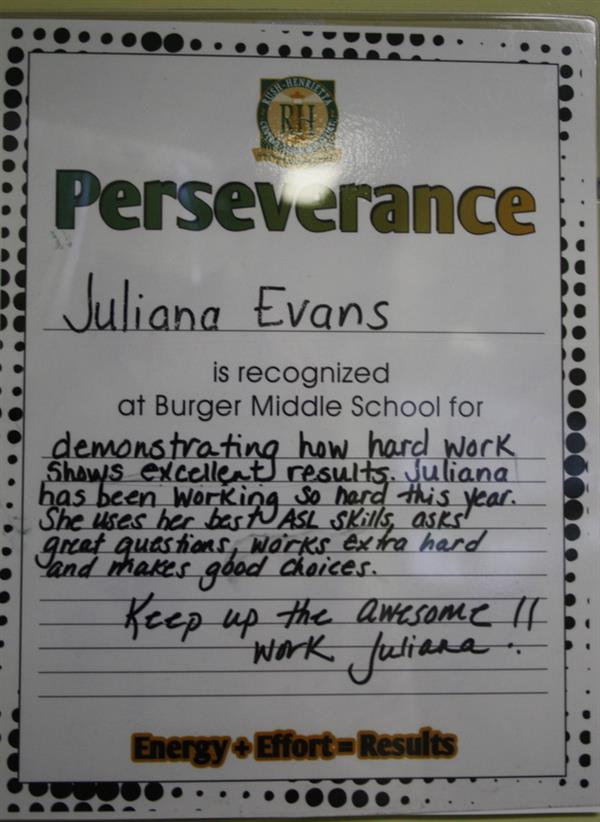 RUSH-HENRIETTA
RH
Perseverance
Juliana Evans
is recognized
at Burger Middle School for
demonstrating how hard work
shows excellent results. Juliana
has been working so hard this year.
She uses her best ASL skills, asks
great questions, works extra hard
and makes good choices.
Keep up the awesome !!
work Juliana
Energy + Effort = Results